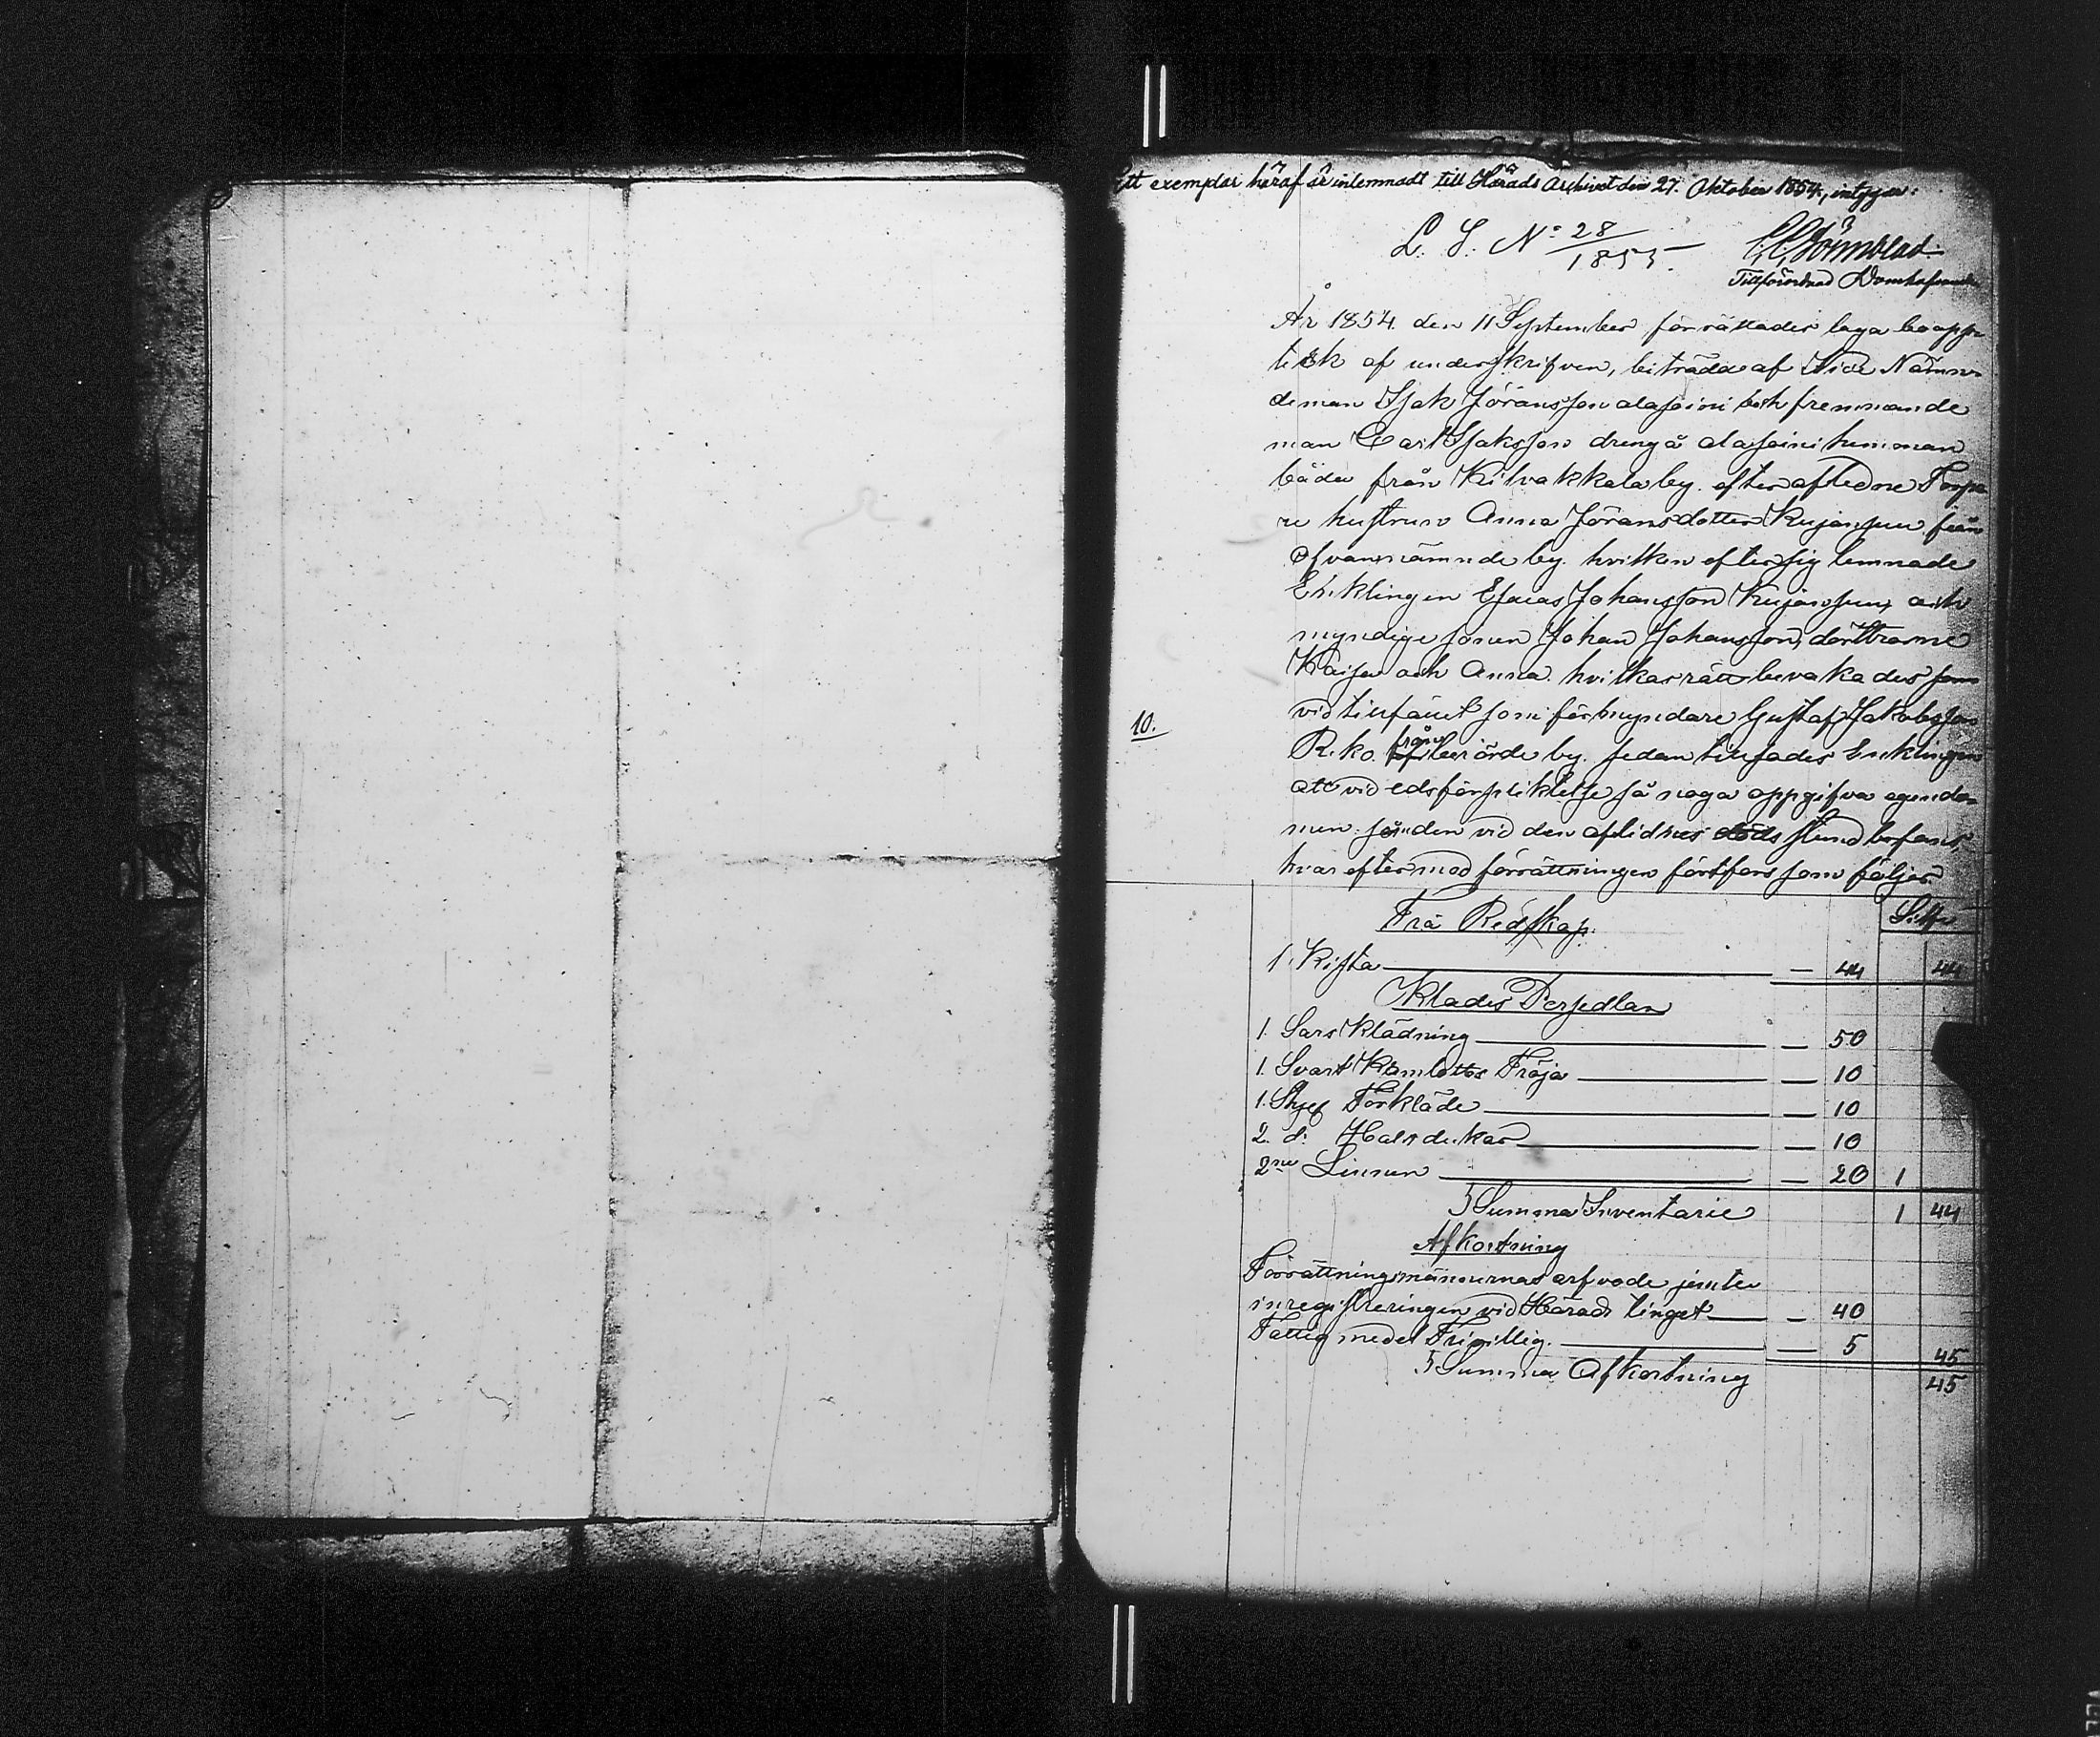 Ett exemplar häraf är inlemnadt till Härads Archivet den 27. Oktober 1854, intygar:
L. S. No 28/1855.
Tillförordnad Domhafvande
År 1854. den 11 September förrättades laga boupp-
teck af underskrifven, biträdd af Nämn-
deman Isak Jöransson alasoini och fremmande
man Carl Isaksson dreng å alasoini hemman
båda från Kilvakkala by. efter aflidne Torpa-
re hustrun Anna Jöransdotter Kujanpuu från
ofvannämnde by. hvilken efter sig lemnade
Enklingen Esaias Johansson Kujanpuu, och
myndige sonen Johan Johansson, döttrarne
Kaisa och Anna. hvilkas rätt bevakades som
vid tillfället som förmyndare Gustaf Jakobsson
10.
Riko. från berörde by. sedan tillsades Enklingen
att vid edsförpliktelse så noga oppgifva egendo-
men. sådan vid den aflidnes döds stund befans,
hvar efter med förrättningen fortfors som följer.
Silfver
Trä Redskap.
1. Kista — 44 44
Kläder Persedlar
1. Sars Klädning — 50
1. Svart Kamlotts Tröja — 10
1. Tyg Förkläde — 10
2. d: Halsdukar — 10
2ne Linnen — 20 1
Summa Inventarie 1 44
Afkortning
Förrättningsmännernas arfvode jemte
inregistreringen vid Härads tinget — 40
Fattig medel Frivillig. — 5 45
Summa Afkortning 45